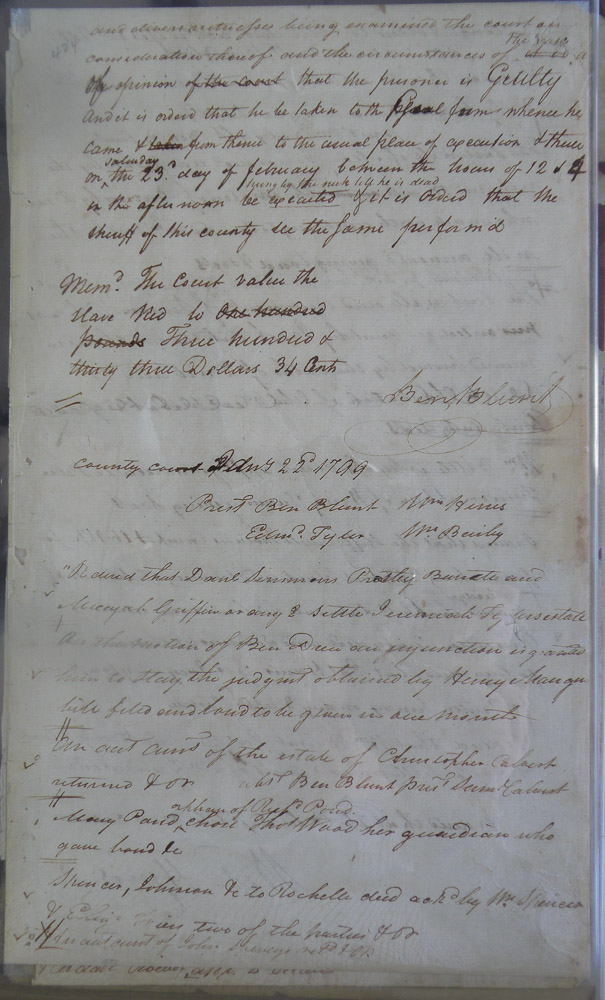 and divers witnesses being examined the court on
consideration thereof and the circumstances of the case
opinion of the court that the prisoner is Guilty
And it is orderd that he be taken to the from whence he
came & taken from thence to the usual place of execution & there
on saturday the 23d day of february between the hours of 12 & 4
in the afternoon be hung by the neck till he is dead executed & it is orderd that the
sheriff of this county see the same performd
Memd. The Court value the
slave Ned to One hundred
pounds Three hundred &
thirty three Dollars 34 Cents
Ben Blunt
county court 22d 1799
Prest Ben Blunt Wm Hines
Edmd. Tyler Wm Baily
Orderd that Danl Simmons and
Micajah Griffin or any 2 settle Jeremiah Tylers estate
On the motion of Ben Drew an injunction is granted
him to stay the judgmt obtained by Henry
bill filed and bond to be given in one month
An aut acct of the estate of Christopher Calvert
returned & OR abst Ben Blunt Saml Calvert
Mary Pond orphan of Pond chose Thos Wood her guardian who
gave bond &c
Spencer, Johnson &c to Rochelle deed ackd by Wm Spencer
& two of the parties & OR
An aut count of John & OR